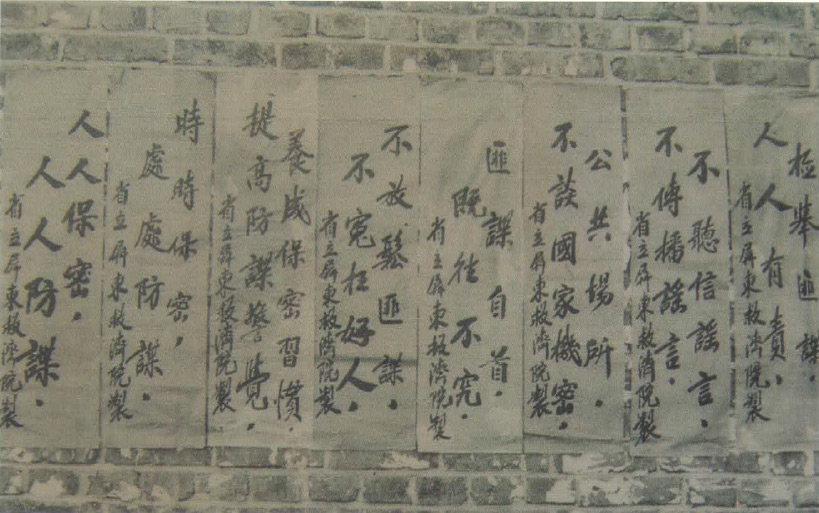 檢舉匪諜，
人人有責，
省立屏東救濟院製
不聽信謠言，
不傳播謠言，
省立屏東救濟院製
公共場所，
不談國家機密，
省立屏東救濟院製
匪諜自首，
既往不究，
省立屏東救濟院製
不放鬆匪諜，
不寃枉好人，
省立屏東救濟院製
養成保密習慣，
提高防諜警覺，
省立屏東救濟院製
時時保密，
處處防諜，
省立屏東救濟院製
人人保密，
人人防諜，
省立屏東救濟院製